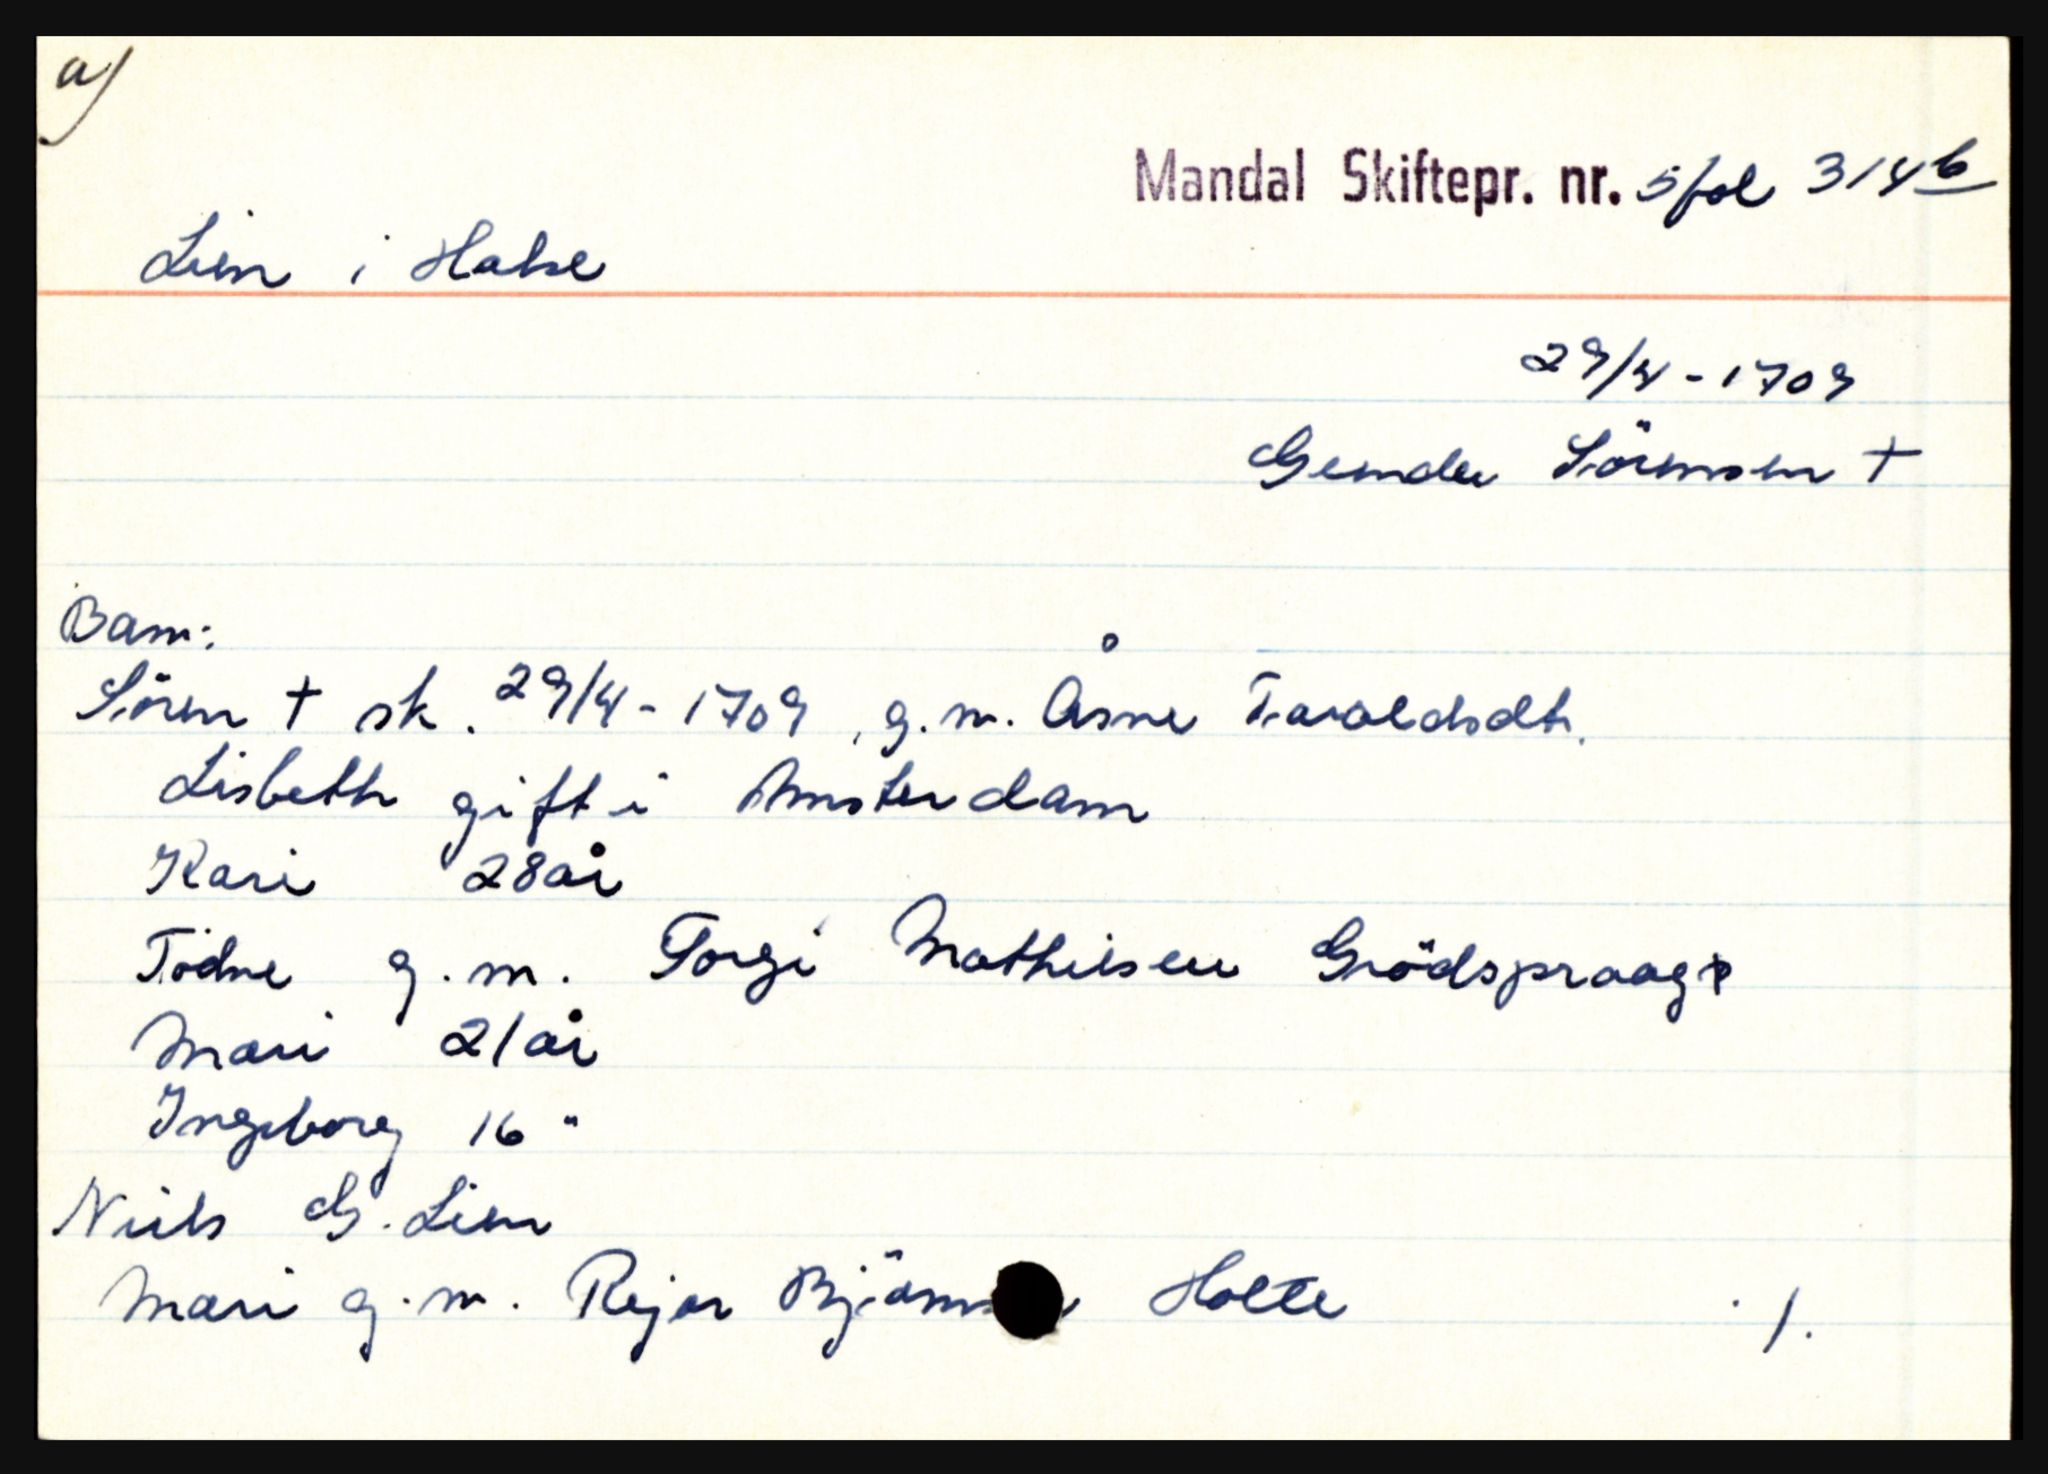 a)
Mandal Skiftepr. nr. 5 fol 314 b
Lien i Halse
29/4 - 1709
Gunder Sörensen †
Barn:
Sören † sk. 29/4 - 1709, g.m. Åsne Taraldsdtr.
Lisbeth gift i Amsterdam
Kari 28 år
Tödne g.m. Torgi Mathisen Grödspraags
Mari 21 år
Ingeborg 16 "
Niels G. Lien
Mari g.m. Rejer Björnsen Holte 1.